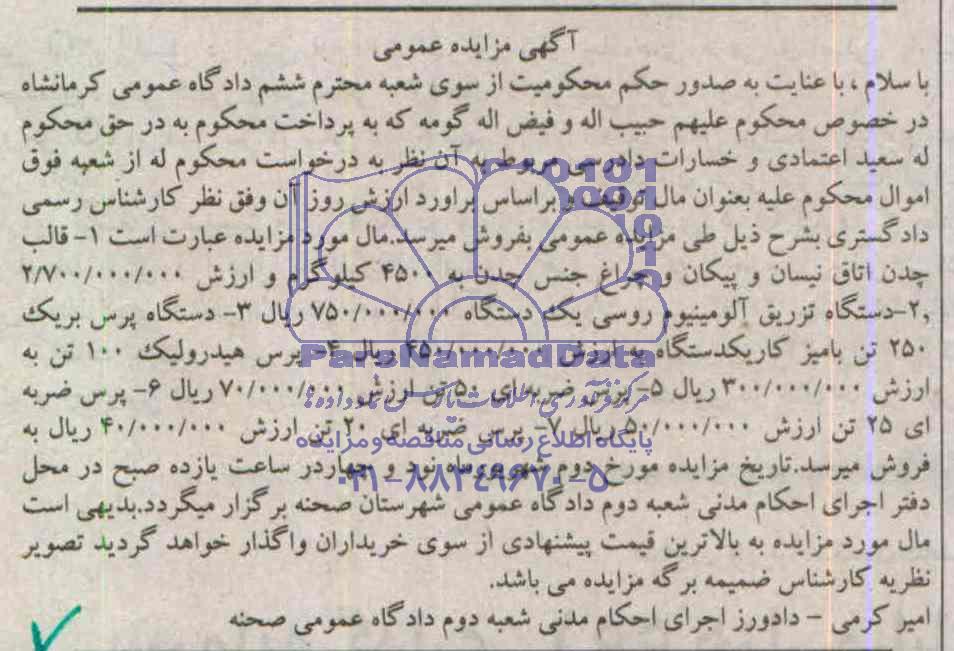 آگهی مزایده عمومی
با سلام ، با عنایت به صدور حکم محکومیت از سوی شعبه محترم ششم دادگاه عمومی کرمانشاه
در خصوص محکوم علیهم حبیب اله و فیض اله گومه که به پرداخت محکوم به در حق محکوم
له سعید اعتمادی و خسارات دادرسی مربوط به آن نظر به درخواست محکوم له از شعبه فوق
اموال محکوم علیه بعنوان مال توقیف و براساس براورد ارزش روز آن وفق نظر کارشناس رسمی
دادگستری بشرح ذیل طی مزایده عمومی بفروش میرسد.مال مورد مزایده عبارت است ۱- قالب
چدن اتاق نیسان و پیکان و چراغ جنس چدن به ۴۵۰۰ کیلوگرم و ارزش ۲/۷۰۰/۰۰۰/۰۰۰
,۲-دستگاه تزریق آلومینیوم روسی یک دستگاه ۷۵۰/۰۰۰/۰۰۰ ریال ۳- دستگاه پرس بریک
۲۵۰ تن بامیز کاریکدستگاه به ارزش ۴۵۰/۰۰۰/۰۰۰ ریال ۴- پرس هیدرولیک ۱۰۰ تن به
ارزش ۳۰۰/۰۰۰/۰۰۰ ریال ۵- پرس ضربه ای ۵۰ تن ارزش ۷۰/۰۰۰/۰۰۰ ریال ۶- پرس ضربه
ای ۲۵ تن ارزش ۵۰/۰۰۰/۰۰۰ ریال ۷- پرس ضربه ای ۲۰ تن ارزش ۴۰/۰۰۰/۰۰۰ ریال به
فروش میرسد.تاریخ مزایده مورخ دوم شهریورماه نود و چهاردر ساعت یازده صبح در محل
دفتر اجرای احکام مدنی شعبه دوم دادگاه عمومی شهرستان صحنه برگزار میگردد.بدیهی است
مال مورد مزایده به بالاترین قیمت پیشنهادی از سوی خریداران واگذار خواهد گردید تصویر
نظریه کارشناس ضمیمه برگه مزایده می باشد.
امیر کرمی - دادورز اجرای احکام مدنی شعبه دوم دادگاه عمومی صحنه
ParsNamadData
پایگاه اطلاع رسانی مناقصه و مزایده
۰۲۱-۸۸۳۴۹۶۷۰-۵